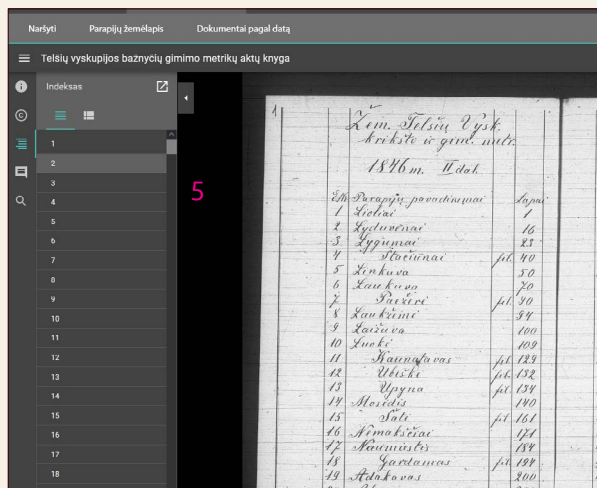 Naršyti Parapijų žemėlapis Dokumentai pagal datą
Telšių vyskupijos bažnyčių gimimo metrikų aktų knyga
Indeksas
1
2
3
4
5
6
7
8
9
10
11
12
13
14
15
16
17
18
5
1
Žem. Telšių Vysk.
krikšto ir gim. metr.
1846 m. II dal.
Parapijų pavadinimai Lapai
1 Lioliai 1
2 Lyduvėnai 16
3 Lygumai 23
4 Stačiūnai fil. 40
5 Linkuva 50
6 Laukuva 70
7 Paežerė fil. 90
8 Laukžemi 94
9 Laižuva 100
10 Luokė 109
11 Kaunatavas fil. 129
12 Ubiškė fil. 132
13 Upyna fil. 134
14 Mosėdis 140
15 Šatė fil. 161
16 Nemakščiai 171
17 Naumiestis 184
18 Gardamas fil. 194
19 Adakavas 200